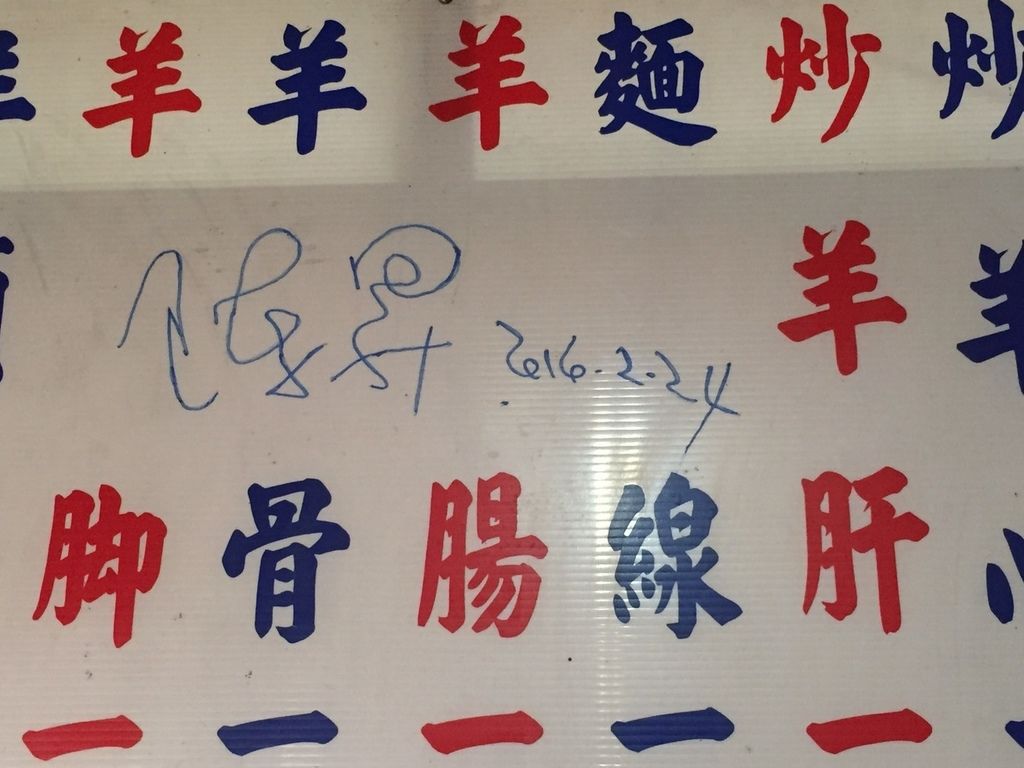 羊 羊 羊 麵 炒 炒
羊 羊
2016.2.24
脚 骨 腸 線 肝
一 一 一 一 一